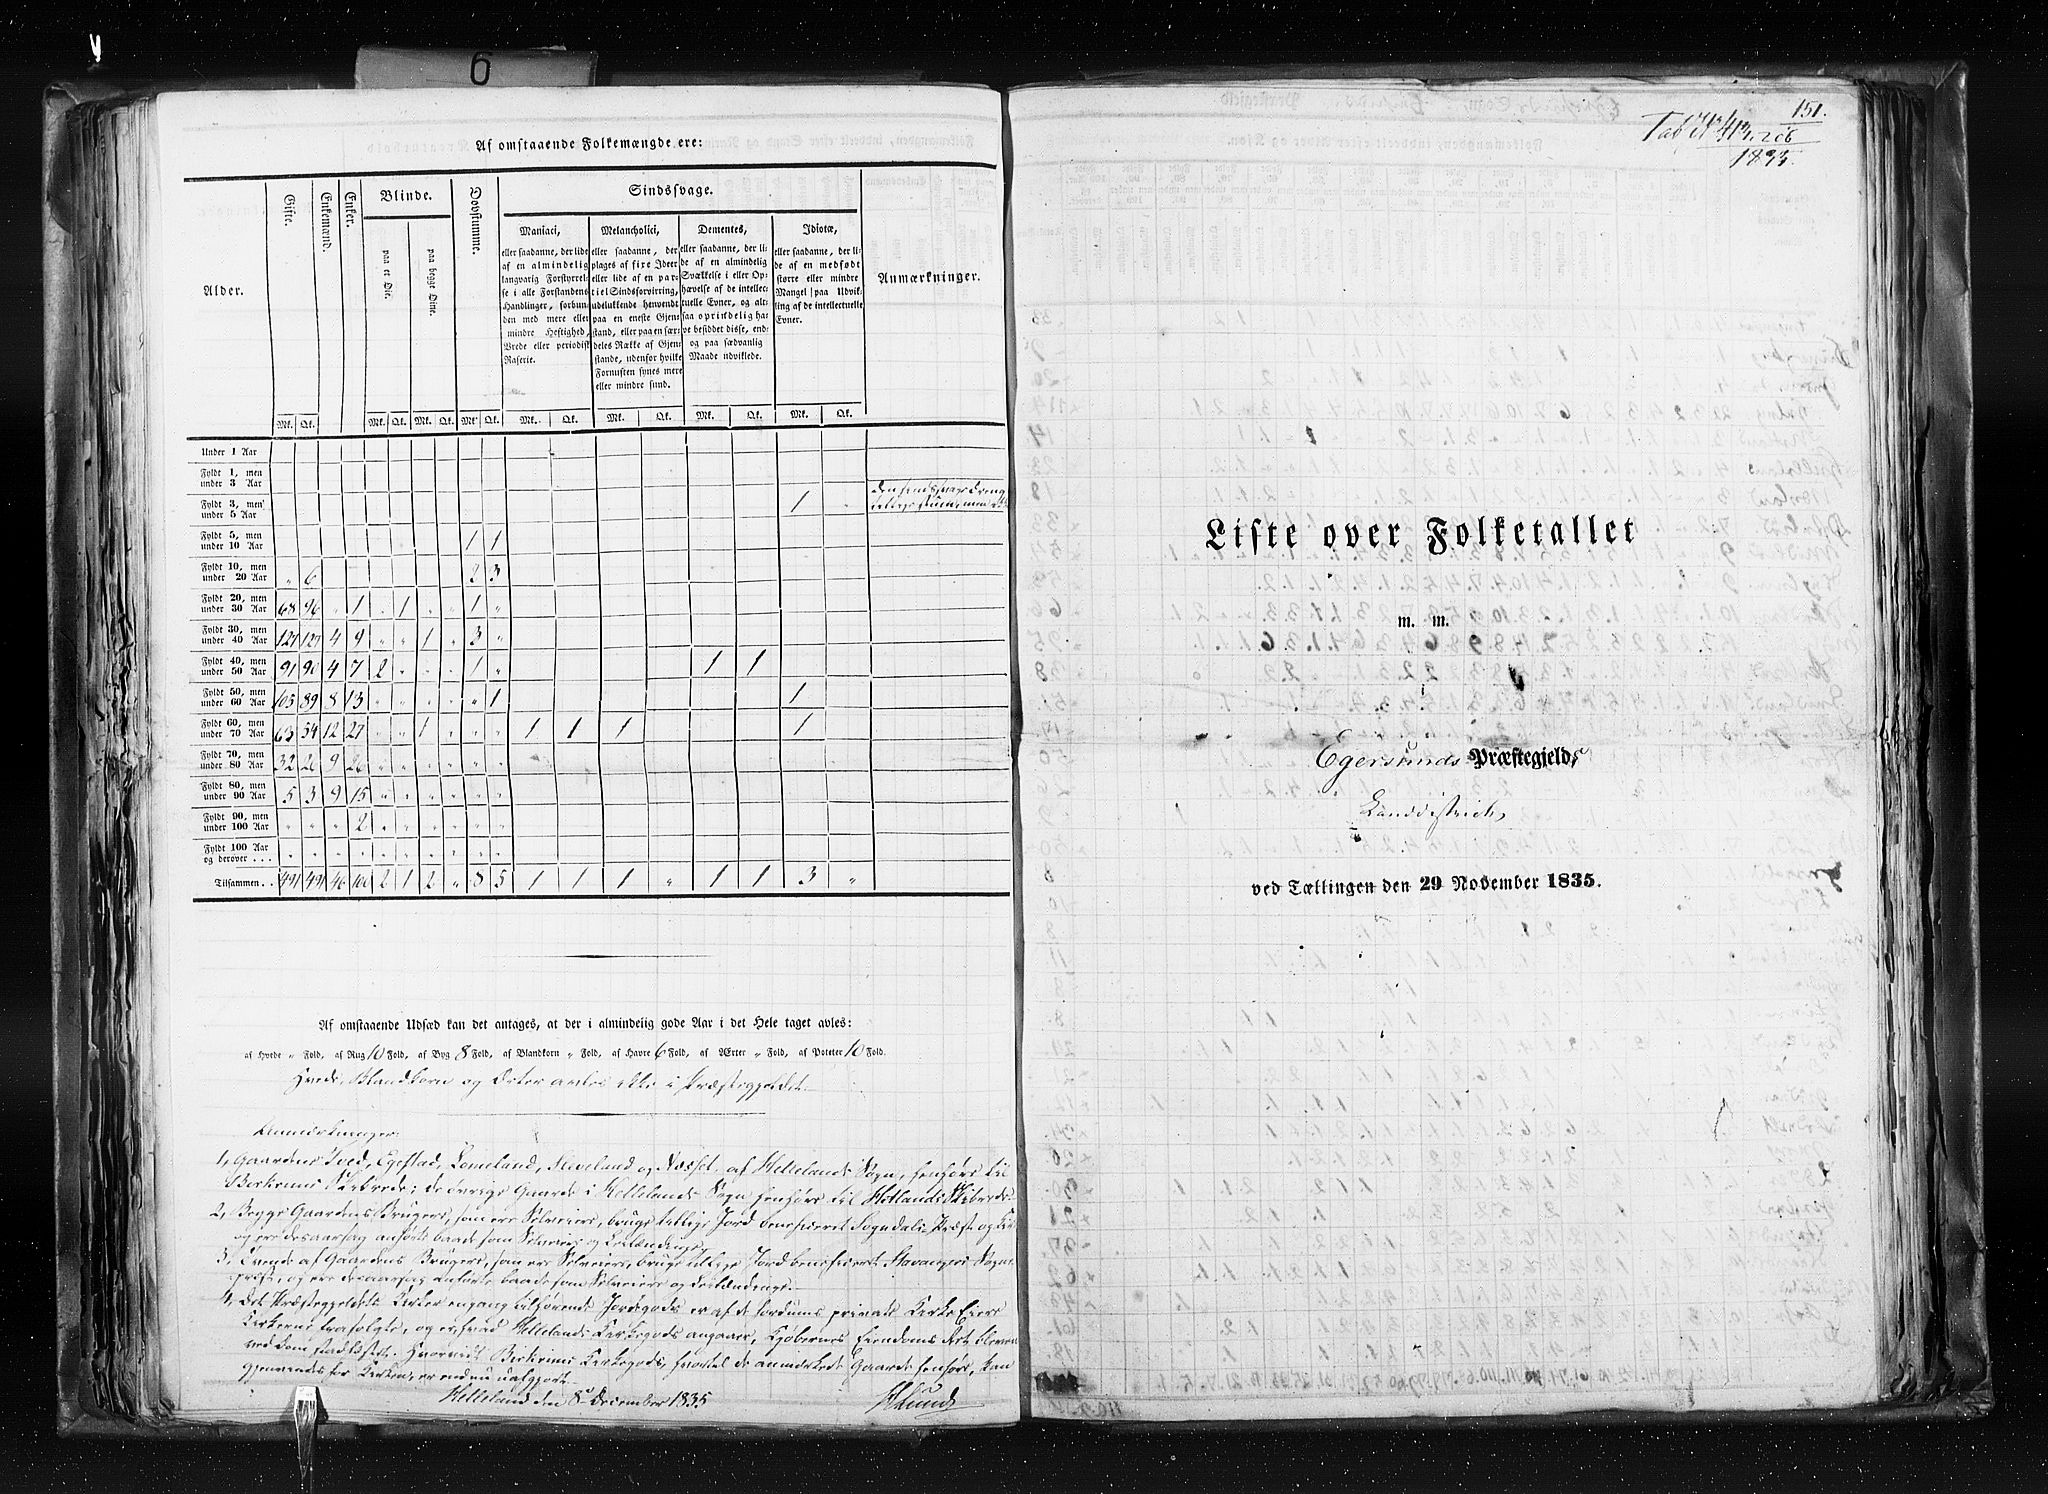 6
Af omstaaende Folkemængde ere:
Alder.
Gifte.
Enkemænd.
Enker.
Blinde.
paa et Øie.
paa begge Øine.
Døvstumme.
Sindssvage.
Maniaci,
eller saadanne, der lide
af en almindelig
langvarig Forstyrrel-
se i alle Forstandens
Handlinger, forbun-
den med mere eller
mindre Heftighed,
Vrede eller periodisk
Raserie.
Melancholici,
eller saadanne, der
plages af fixe Ideer
eller lide af en par-
tiel Sindsforvirring,
udelukkende henvendt
paa en eneste Gjen-
stand, eller paa en sær-
deles Række af Gjen-
stande, udenfor hvilke
Fornuften synes mere
eller mindre sund.
Dementes,
eller saadanne, der li-
de af en almindelig
Svækkelse i eller Op-
hævelse af de intellec-
tuelle Evner, og alt-
saa oprindelig ha-
ve besiddet disse, end-
og paa sædvanlig
Maade udviklede.
Idiotæ,
eller saadanne, der li-
de af en medfødt
større eller mindre
Mangel paa Udvik-
ling af de intellectuelle
Evner.
Anmærkninger.
Mk. Qk. Mk. Qk. Mk. Qk. Mk. Qk. Mk. Qk. Mk. Qk. Mk. Qk. Mk. Qk.
Under 1 Aar
Fyldt 1, men
under 3 Aar
Fyldt 3, men
under 5 Aar 1 "
Fyldt 5, men
under 10 Aar 1 1
Fyldt 10, men
under 20 Aar " 6 2 3
Fyldt 20, men
under 30 Aar 68 96 " 1 " 1 " " 1 "
Fyldt 30, men
under 40 Aar 127 127 4 9 " " 1 " 3 "
Fyldt 40, men
under 50 Aar 91 90 4 7 2 " " " 1 " 1 1
Fyldt 50, men
under 60 Aar 105 89 8 13 " " " " " 1 1
Fyldt 60, men
under 70 Aar 63 54 12 27 " " 1 " " " 1 1 1 1
Fyldt 70, men
under 80 Aar 32 26 9 26 " " " " " "
Fyldt 80, men
under 90 Aar 5 3 9 15 " " " " " "
Fyldt 90, men
under 100 Aar " " " 2 " " " " " "
Fyldt 100 Aar
og derover ... " " " " " " " " " "
Tilsammen.. 491 491 46 100 2 1 2 " 8 5 1 1 1 " 1 1 3 "
Af omstaaende Udsæd kan det antages, at der i almindelig gode Aar i det Hele taget avles:
af Hvede " Fold, af Rug 10 Fold, af Byg 8 Fold, af Blandkorn " Fold, af Havre 6 Fold, af Ærter " Fold, af Poteter 10 Fold.
Hvede, Blandkorn og Erter avles ikke i Præstegjeldet.
Anmærkninger:
1, Gaardene Tved, Egestad, Lomeland, Fleveland og Næsset af Hellelands Sogn, henhøre til
Birkrems Skibrede; de øvrige Gaarde i Hellelands Sogn henhøre til Hetlands Skibrede.
2, Begge Gaardens Brugere, som ere Selveiere, bruge tillige Jord beneficeret Sogndals Præst og
og ere desaarsag anførte baade som Selveiere og Leilændinge.
3, Tvende af Gaardens Brugere, som ere Selveiere, bruge tillige Jord beneficeret Stavangers Sogne-
præst, og ere desaarsag anførte baade som Selveiere og Leilændinge.
4, Det Præstegjeldets Kirker engang tilhørende Jordegods er af de fordums private Kirke Eiere
Kirkerne frafolgte, og er, hvad Hellelands Kirkegods angaaer, Kjøbernes Eiendoms Ret bleven
ved Dom stadfæstet. Hvorvidt Birkrems Kirkegods, hvortil de anmærkede Gaarde henhøre, kan
gjenvindes for Kirken, er endnu uafgjort.
Helleland den 8de December 1835
151.
Liste over Folketallet
m. m.
i
Egersunds Præstegjelds
Landdistrict,
ved Tællingen den 29 November 1835.